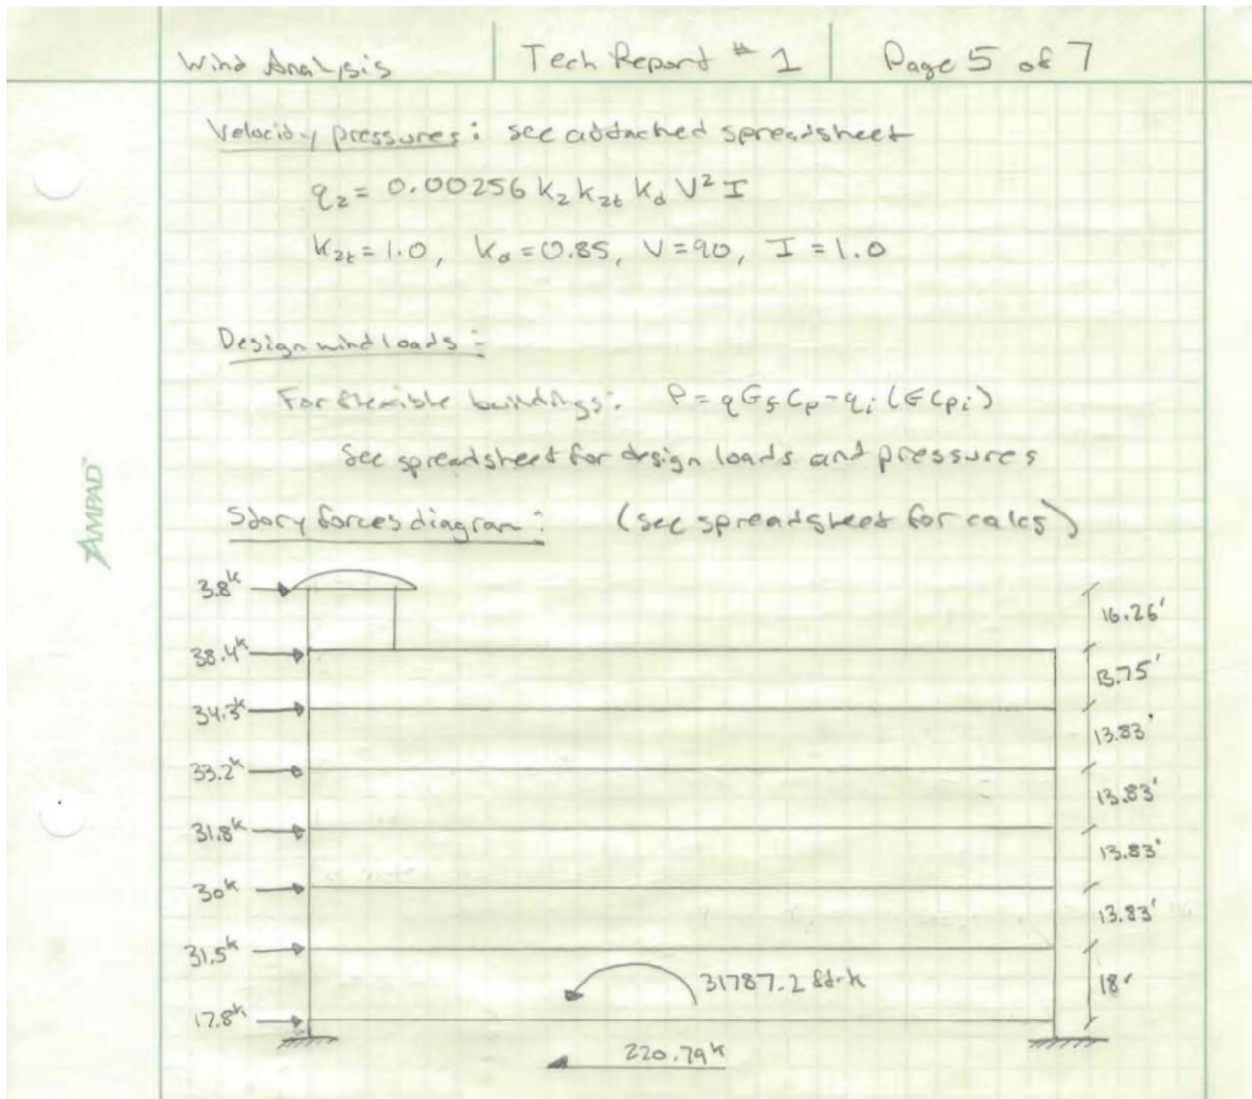 Wind Analysis
Tech Report # 1
Page 5 of 7
Velocity pressures: see attached spreadsheet
q_z = 0.00256 k_z k_zt k_d V² I
k_zt = 1.0, k_d = 0.85, V = 90, I = 1.0
Design wind loads:
For flexible buildings: P = q G_f C_p - q_i (G C_pi)
See spreadsheet for design loads and pressures
Story forces diagram: (see spreadsheet for calcs)
AMPAD™
3.8k
16.26'
38.4k
13.75'
34.3k
13.83'
33.2k
13.83'
31.8k
13.83'
30k
13.83'
31.5k
31787.2 ft-k
18'
17.8k
220.79k